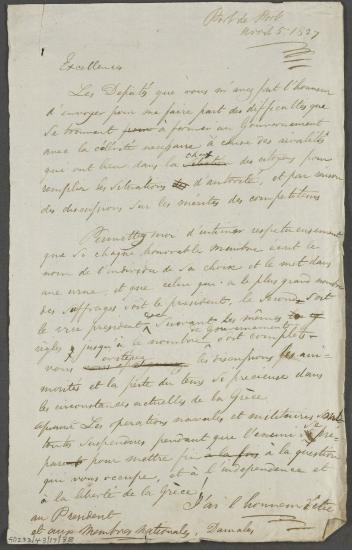 Port de Port
Avril 5 1827
Excellences
Les Deputés que vous m'avez fait l'honneur
d'envoyer pour me faire part des difficultés que
se trouvent a former un Gouvernement
avec la célérité necessaire à cause des rivalités
que ont lieu dans la choix des citoyens pour
remplir les situations d'autorité, et par raison
des discussions sur les merites des competiteurs
Permettez moi d'intimer respectueusement
que si chaque honorable Membre ecrit le
nom de l'individu de sa choix et le met dans
une urne, et que celui que a le plus grand nombre
des suffrages soit le president, le second soit
le vice president, suivant les mêmes
règles jusqu'à le nombre du Gouvernement soit complete
vous eviterez les discussions ani-
mosités et la perte du tems si precieuse dans
les circonstances actuelles de la Grèce
Les operations navales et militaires sont
toutes suspendues pendant que l'ennemi se pre-
pare pour mettre fin à la question
que vous occupe, et à l'independence et
à la liberté de la Grèce!
J'ai l'honneur d'être
au President
et aux Membres nationales, Damala
50233/43/17/38